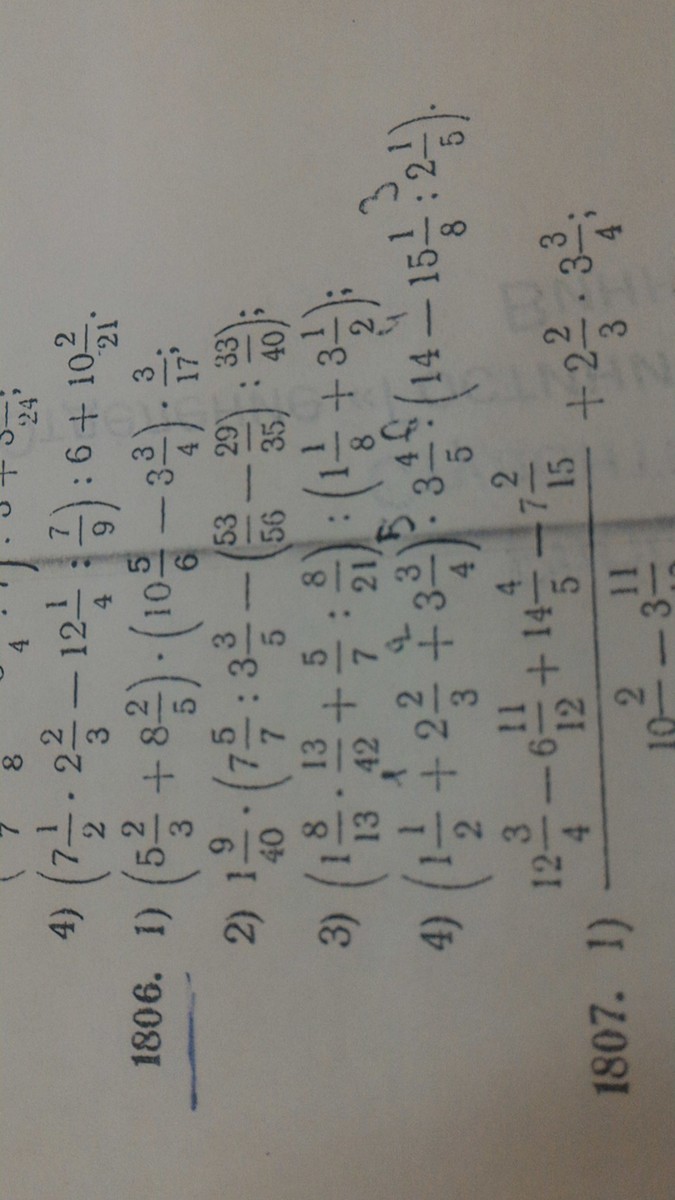 4) (7 1/2 · 2 2/3 − 12 1/4 : 7/9) : 6 + 10 2/21.
1806. 1) (5 2/3 + 8 2/5) · (10 5/6 − 3 3/4) · 3/17;
2) 1 9/40 · (7 5/7 : 3 3/5 − (53/56 − 29/35) : 33/40);
3) (1 8/13 · 13/42 + 5/7 : 8/21) : (1 1/8 + 3 1/2);
1 2 5 6 4 3
4) (1 1/2 + 2 2/3 + 3 3/4) · 3 4/5 : (14 − 15 1/8 : 2 1/5).
12 3/4 − 6 11/12 + 14 4/5 − 7 2/15
1807. 1) + 2 2/3 · 3 3/4;
10 2 − 3 11